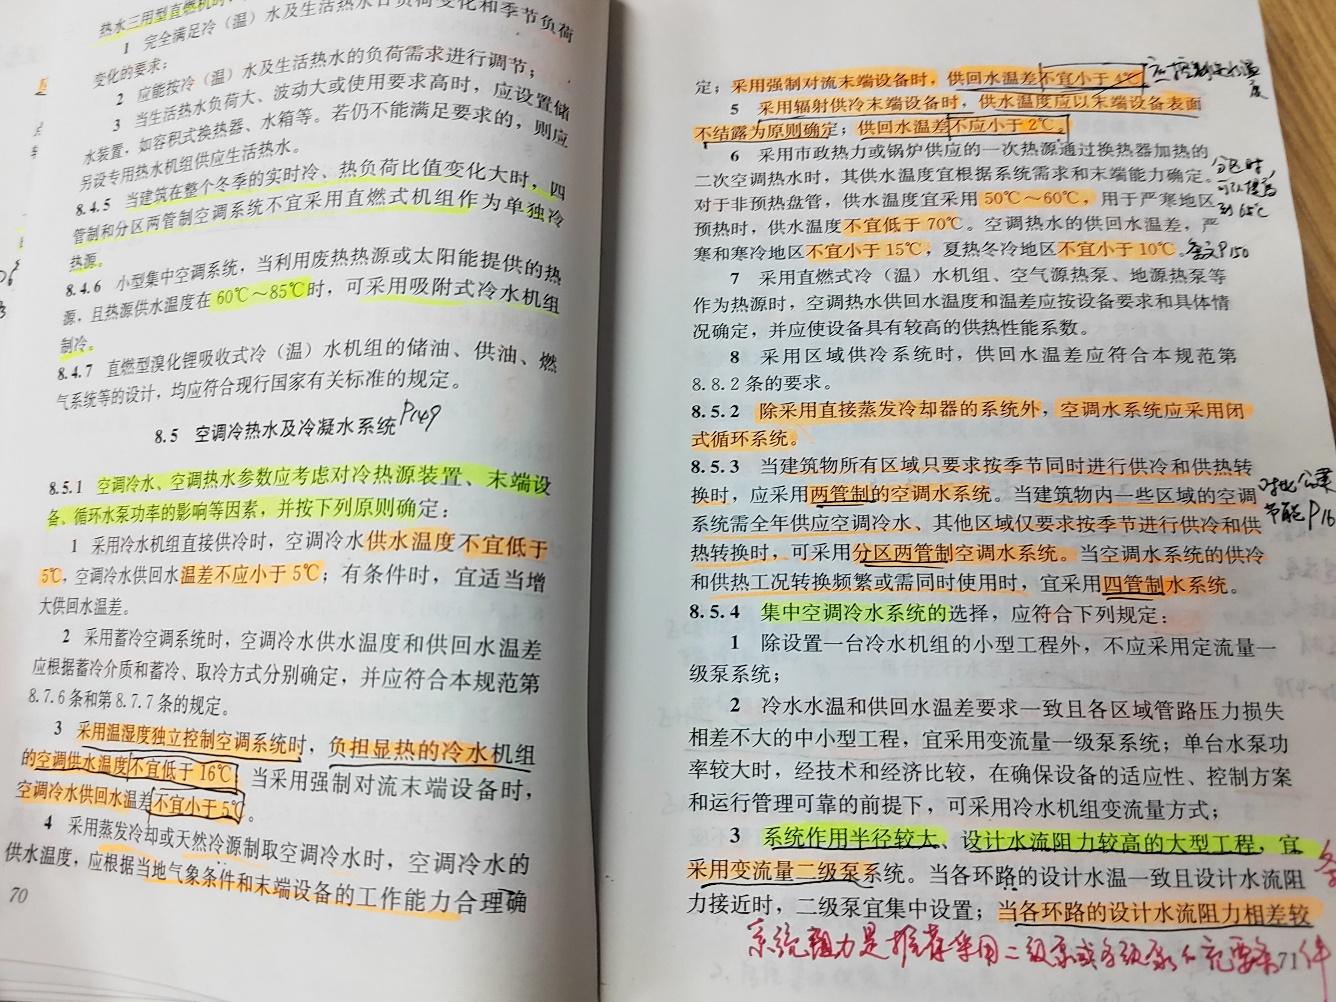 热水三用型直燃机的
1 完全满足冷（温）水及生活热水日负荷变化和季节负荷
变化的要求；
2 应能按冷（温）水及生活热水的负荷需求进行调节；
3 当生活热水负荷大、波动大或使用要求高时，应设置储
水装置，如容积式换热器、水箱等。若仍不能满足要求的，则应
另设专用热水机组供应生活热水。
8.4.5 当建筑在整个冬季的实时冷、热负荷比值变化大时，四
管制和分区两管制空调系统不宜采用直燃式机组作为单独冷
热源。
8.4.6 小型集中空调系统，当利用废热热源或太阳能提供的热
源，且热源供水温度在60℃～85℃时，可采用吸附式冷水机组
制冷。
8.4.7 直燃型溴化锂吸收式冷（温）水机组的储油、供油、燃
气系统等的设计，均应符合现行国家有关标准的规定。
8.5 空调冷热水及冷凝水系统 P149
8.5.1 空调冷水、空调热水参数应考虑对冷热源装置、末端设
备、循环水泵功率的影响等因素，并按下列原则确定：
1 采用冷水机组直接供冷时，空调冷水供水温度不宜低于
5℃，空调冷水供回水温差不应小于5℃；有条件时，宜适当增
大供回水温差。
2 采用蓄冷空调系统时，空调冷水供水温度和供回水温差
应根据蓄冷介质和蓄冷、取冷方式分别确定，并应符合本规范第
8.7.6条和第8.7.7条的规定。
3 采用温湿度独立控制空调系统时，负担显热的冷水机组
的空调供水温度不宜低于16℃；当采用强制对流末端设备时，
空调冷水供回水温差不宜小于5℃。
4 采用蒸发冷却或天然冷源制取空调冷水时，空调冷水的
供水温度，应根据当地气象条件和末端设备的工作能力合理确
70
定；采用强制对流末端设备时，供回水温差不宜小于4℃。
5 采用辐射供冷末端设备时，供水温度应以末端设备表面
不结露为原则确定；供回水温差不应小于2℃。
6 采用市政热力或锅炉供应的一次热源通过换热器加热的
二次空调热水时，其供水温度宜根据系统需求和末端能力确定。
对于非预热盘管，供水温度宜采用50℃～60℃，用于严寒地区
预热时，供水温度不宜低于70℃。空调热水的供回水温差，严
寒和寒冷地区不宜小于15℃，夏热冬冷地区不宜小于10℃。条文P150
分区时，
可以提高
到65℃
7 采用直燃式冷（温）水机组、空气源热泵、地源热泵等
作为热源时，空调热水供回水温度和温差应按设备要求和具体情
况确定，并应使设备具有较高的供热性能系数。
8 采用区域供冷系统时，供回水温差应符合本规范第
8.8.2条的要求。
8.5.2 除采用直接蒸发冷却器的系统外，空调水系统应采用闭
式循环系统。
8.5.3 当建筑物所有区域只要求按季节同时进行供冷和供热转
换时，应采用两管制的空调水系统。当建筑物内一些区域的空调
系统需全年供应空调冷水、其他区域仅要求按季节进行供冷和供
热转换时，可采用分区两管制空调水系统。当空调水系统的供冷
和供热工况转换频繁或需同时使用时，宜采用四管制水系统。
对比公建
节能P16
8.5.4 集中空调冷水系统的选择，应符合下列规定：
1 除设置一台冷水机组的小型工程外，不应采用定流量一
级泵系统；
2 冷水水温和供回水温差要求一致且各区域管路压力损失
相差不大的中小型工程，宜采用变流量一级泵系统；单台水泵功
率较大时，经技术和经济比较，在确保设备的适应性、控制方案
和运行管理可靠的前提下，可采用冷水机组变流量方式；
3 系统作用半径较大、设计水流阻力较高的大型工程，宜
采用变流量二级泵系统。当各环路的设计水温一致且设计水流阻
力接近时，二级泵宜集中设置；当各环路的设计水流阻力相差较
系统阻力是推荐采用二级泵或多级泵的充要条件
71